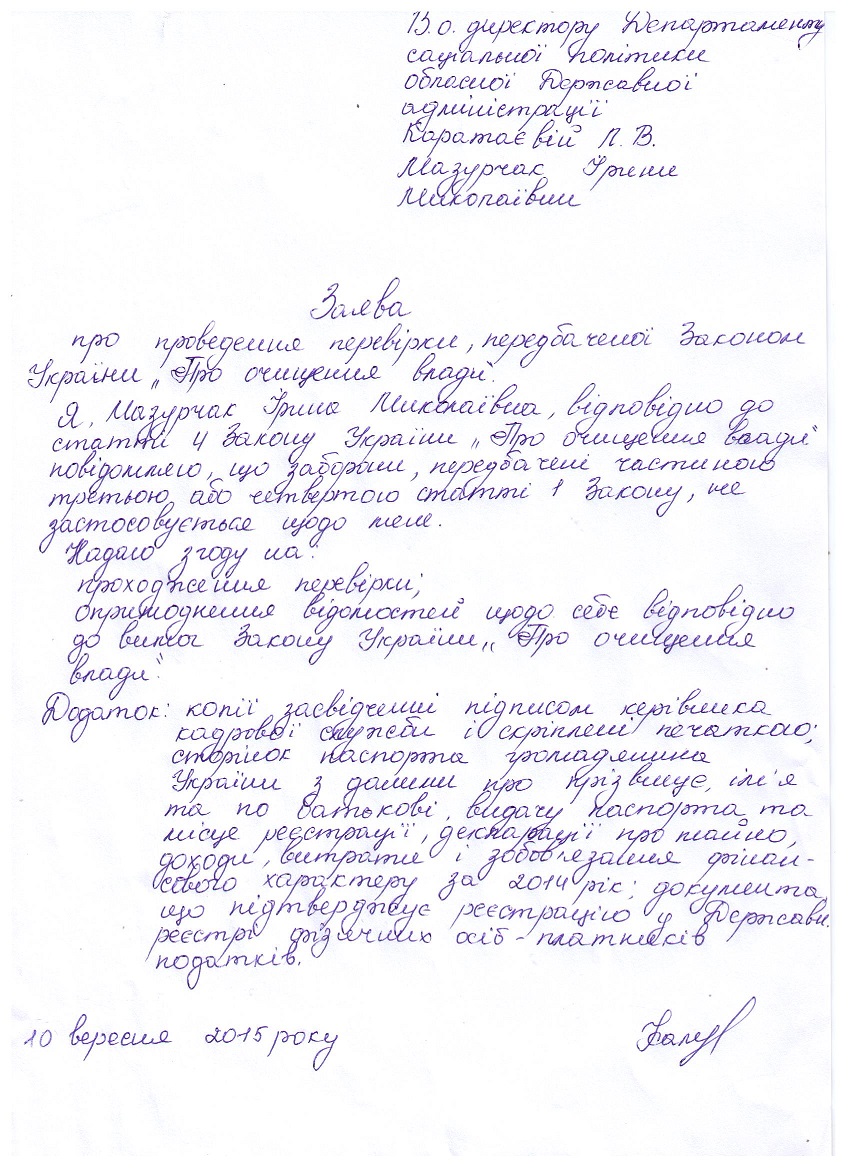 В.о. директору Департаменту
соціальної політики
обласної Державної
адміністрації
Каратаєвій Л. В.
Мазурчак Ірини
Миколаївни
Заява
про проведення перевірки, передбаченої Законом
України „Про очищення влади".
Я, Мазурчак Ірина Миколаївна, відповідно до
статті 4 Закону України „Про очищення влади"
повідомляю, що заборони, передбачені частиною
третьою або четвертою статті 1 Закону, не
застосовується щодо мене.
Надаю згоду на:
проходження перевірки;
оприлюднення відомостей щодо себе відповідно
до вимог Закону України „Про очищення
влади".
Додаток: копії засвідченні підписом керівника
кадрової служби і скріплені печаткою;
сторінок паспорта громадянина
України з даними про прізвище, ім'я
та по батькові, видачу паспорта та
місце реєстрації, декларації про майно,
доходи, витрати і зобов'язання фінан-
сового характеру за 2014 рік; документа,
що підтверджує реєстрацію у Державн.
реєстрі фізичних осіб-платників
податків.
10 вересня 2015 року